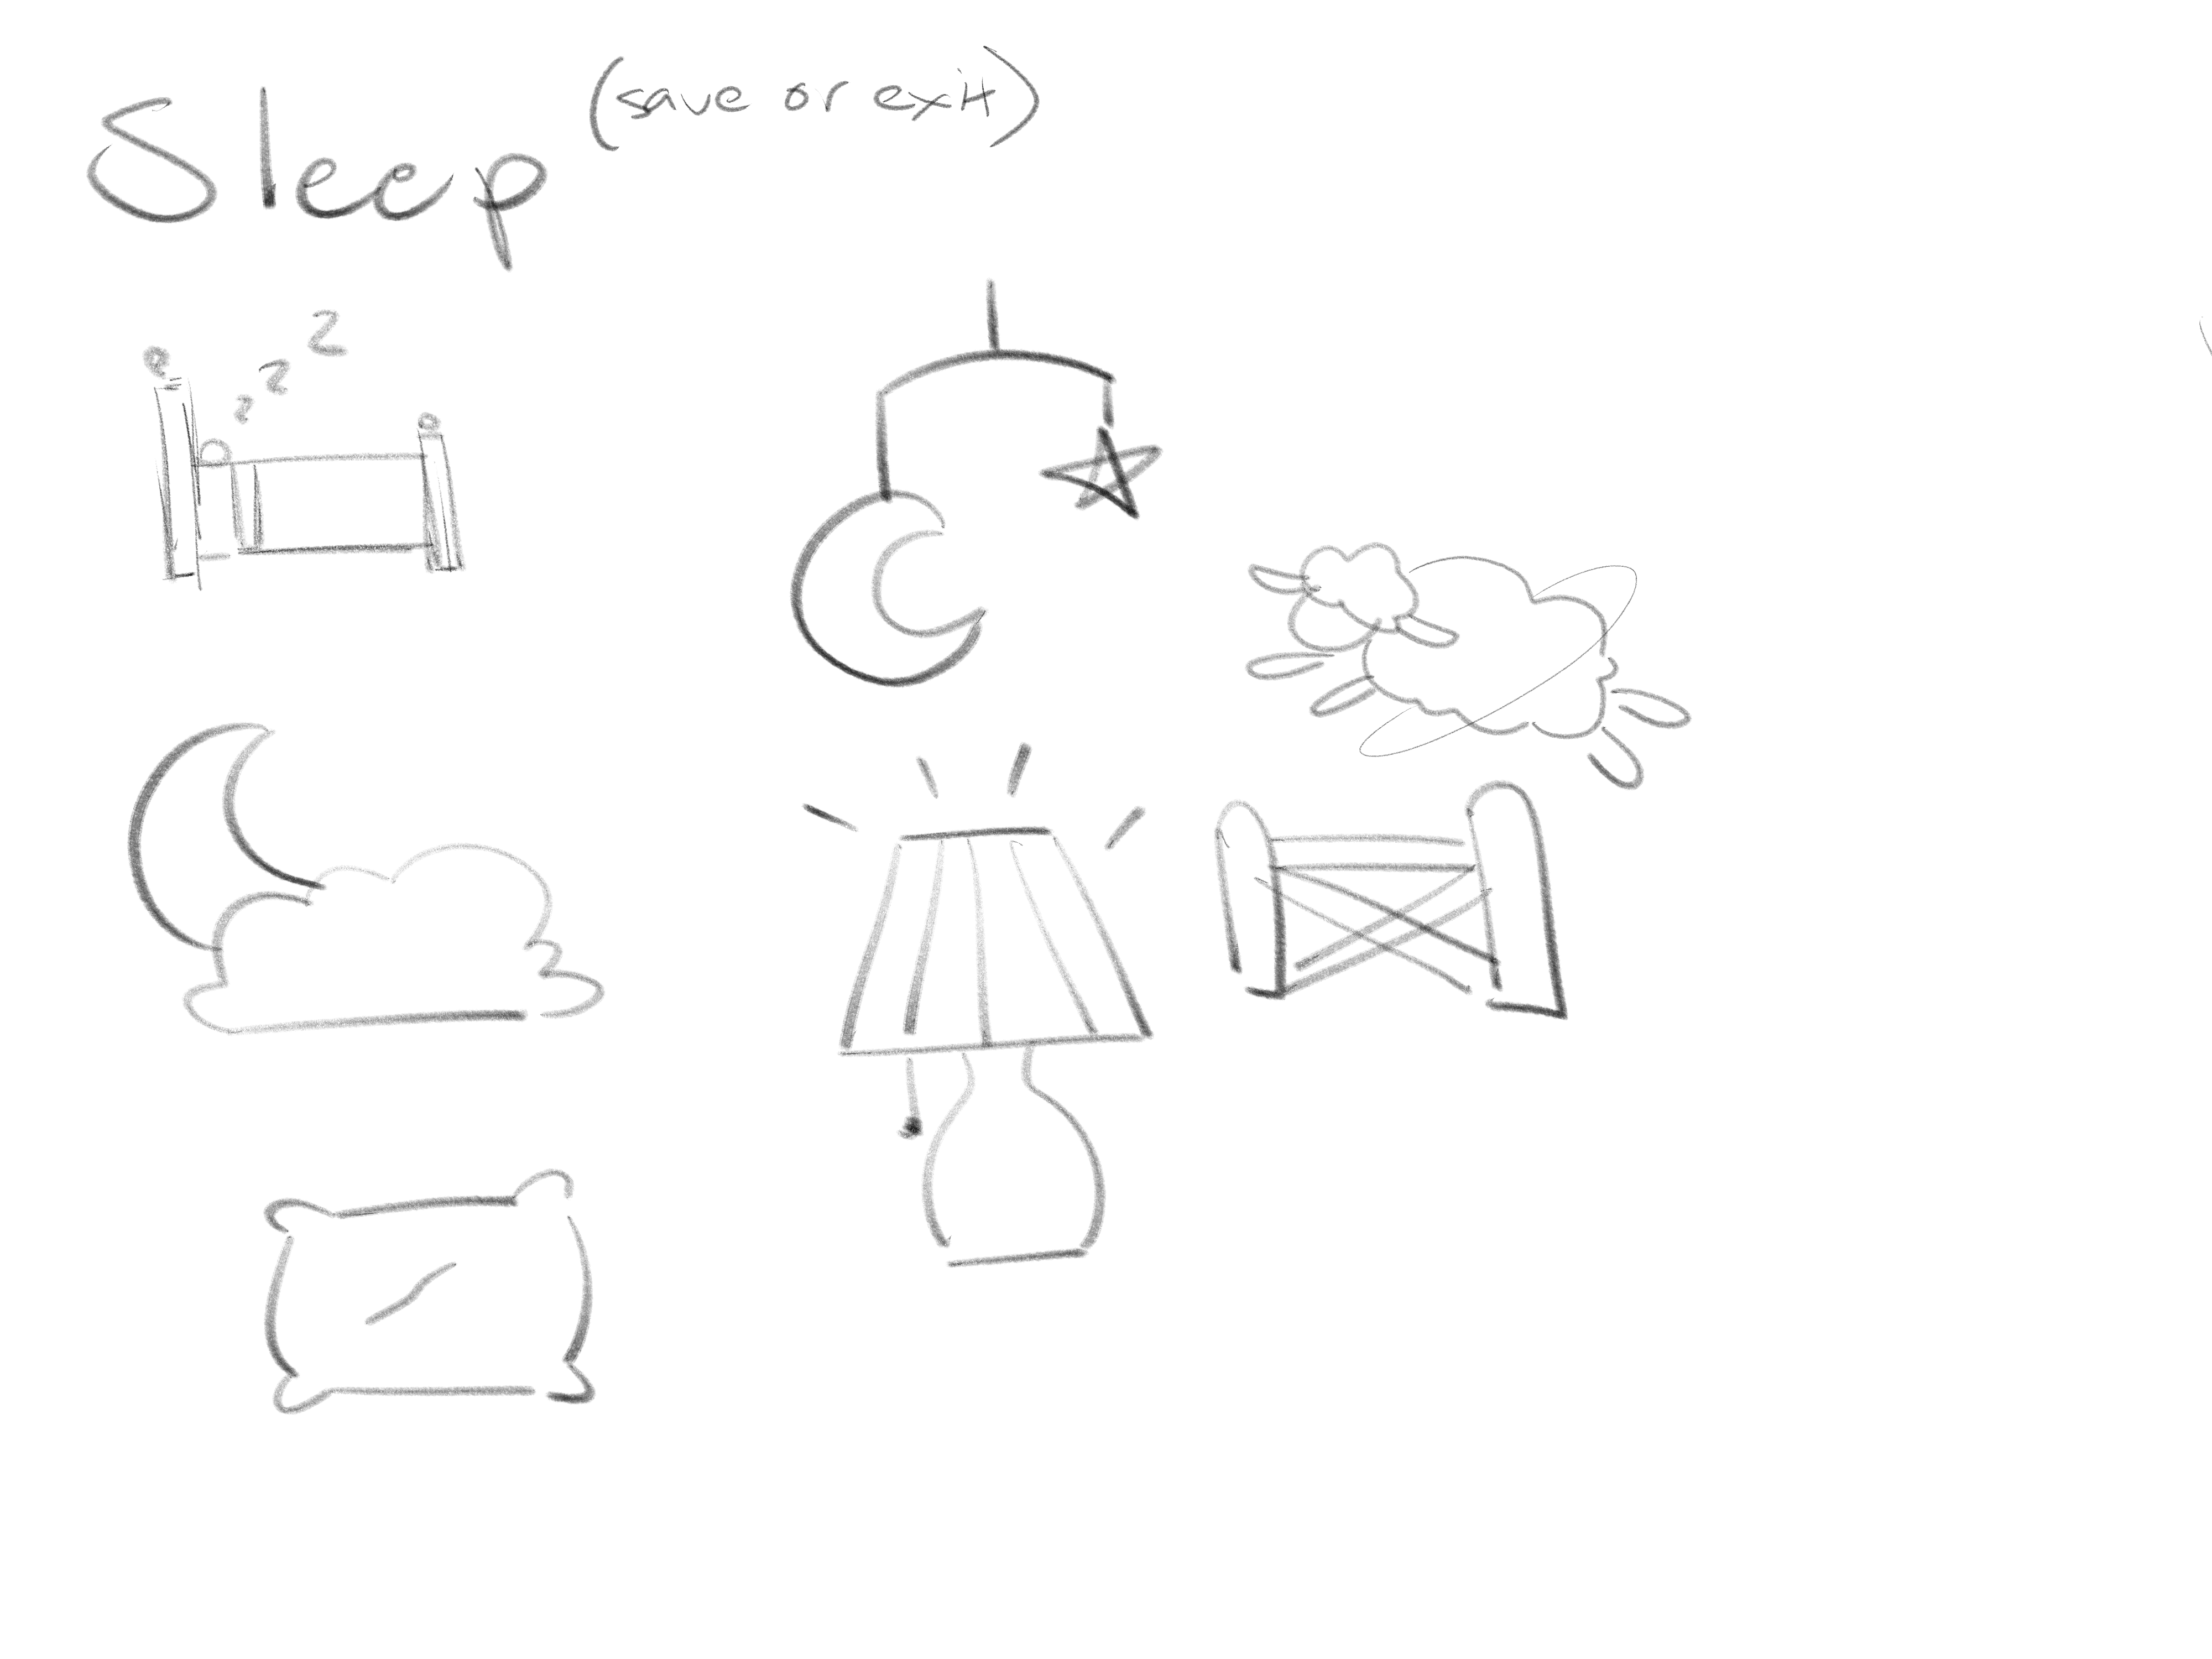 Sleep (save or exit)
z z z